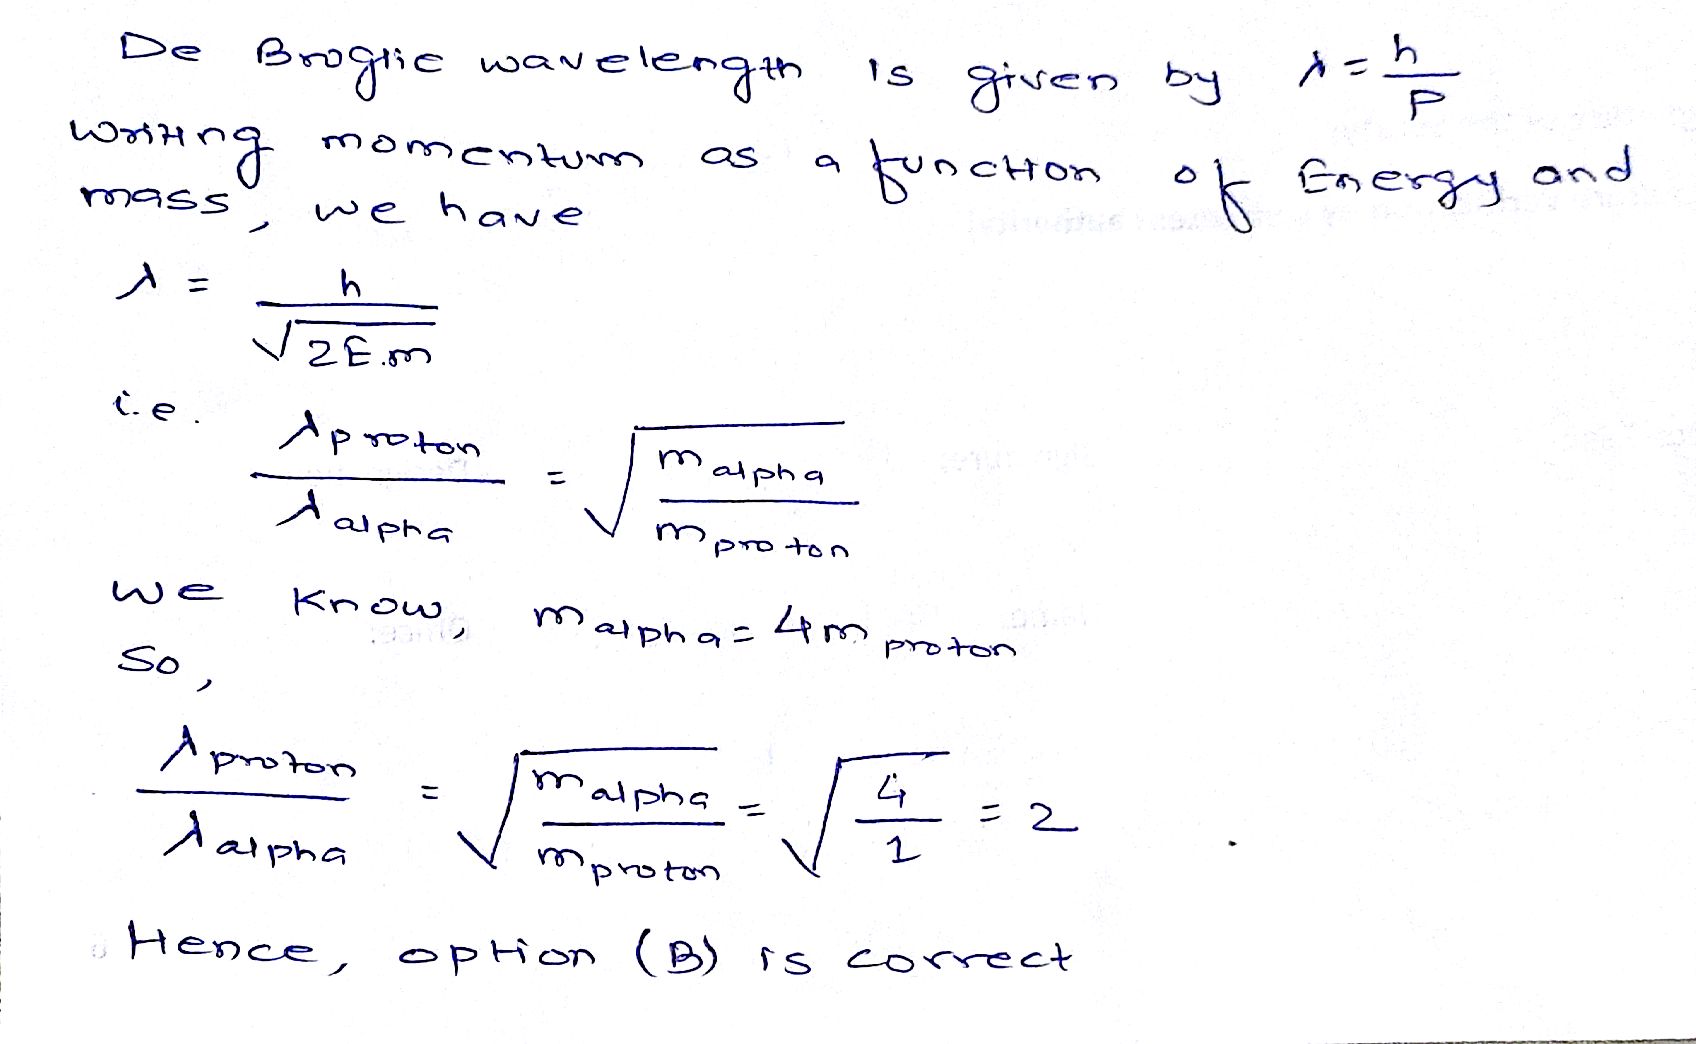 De Broglie wavelength is given by λ = h/P
writing momentum as a function of Energy and
mass, we have
λ = h/√(2E.m)
i.e. λproton/λalpha = √(malpha/mproton)
we know, malpha = 4m proton
So,
λproton/λalpha = √(malpha/mproton) = √(4/1) = 2
Hence, option (B) is correct